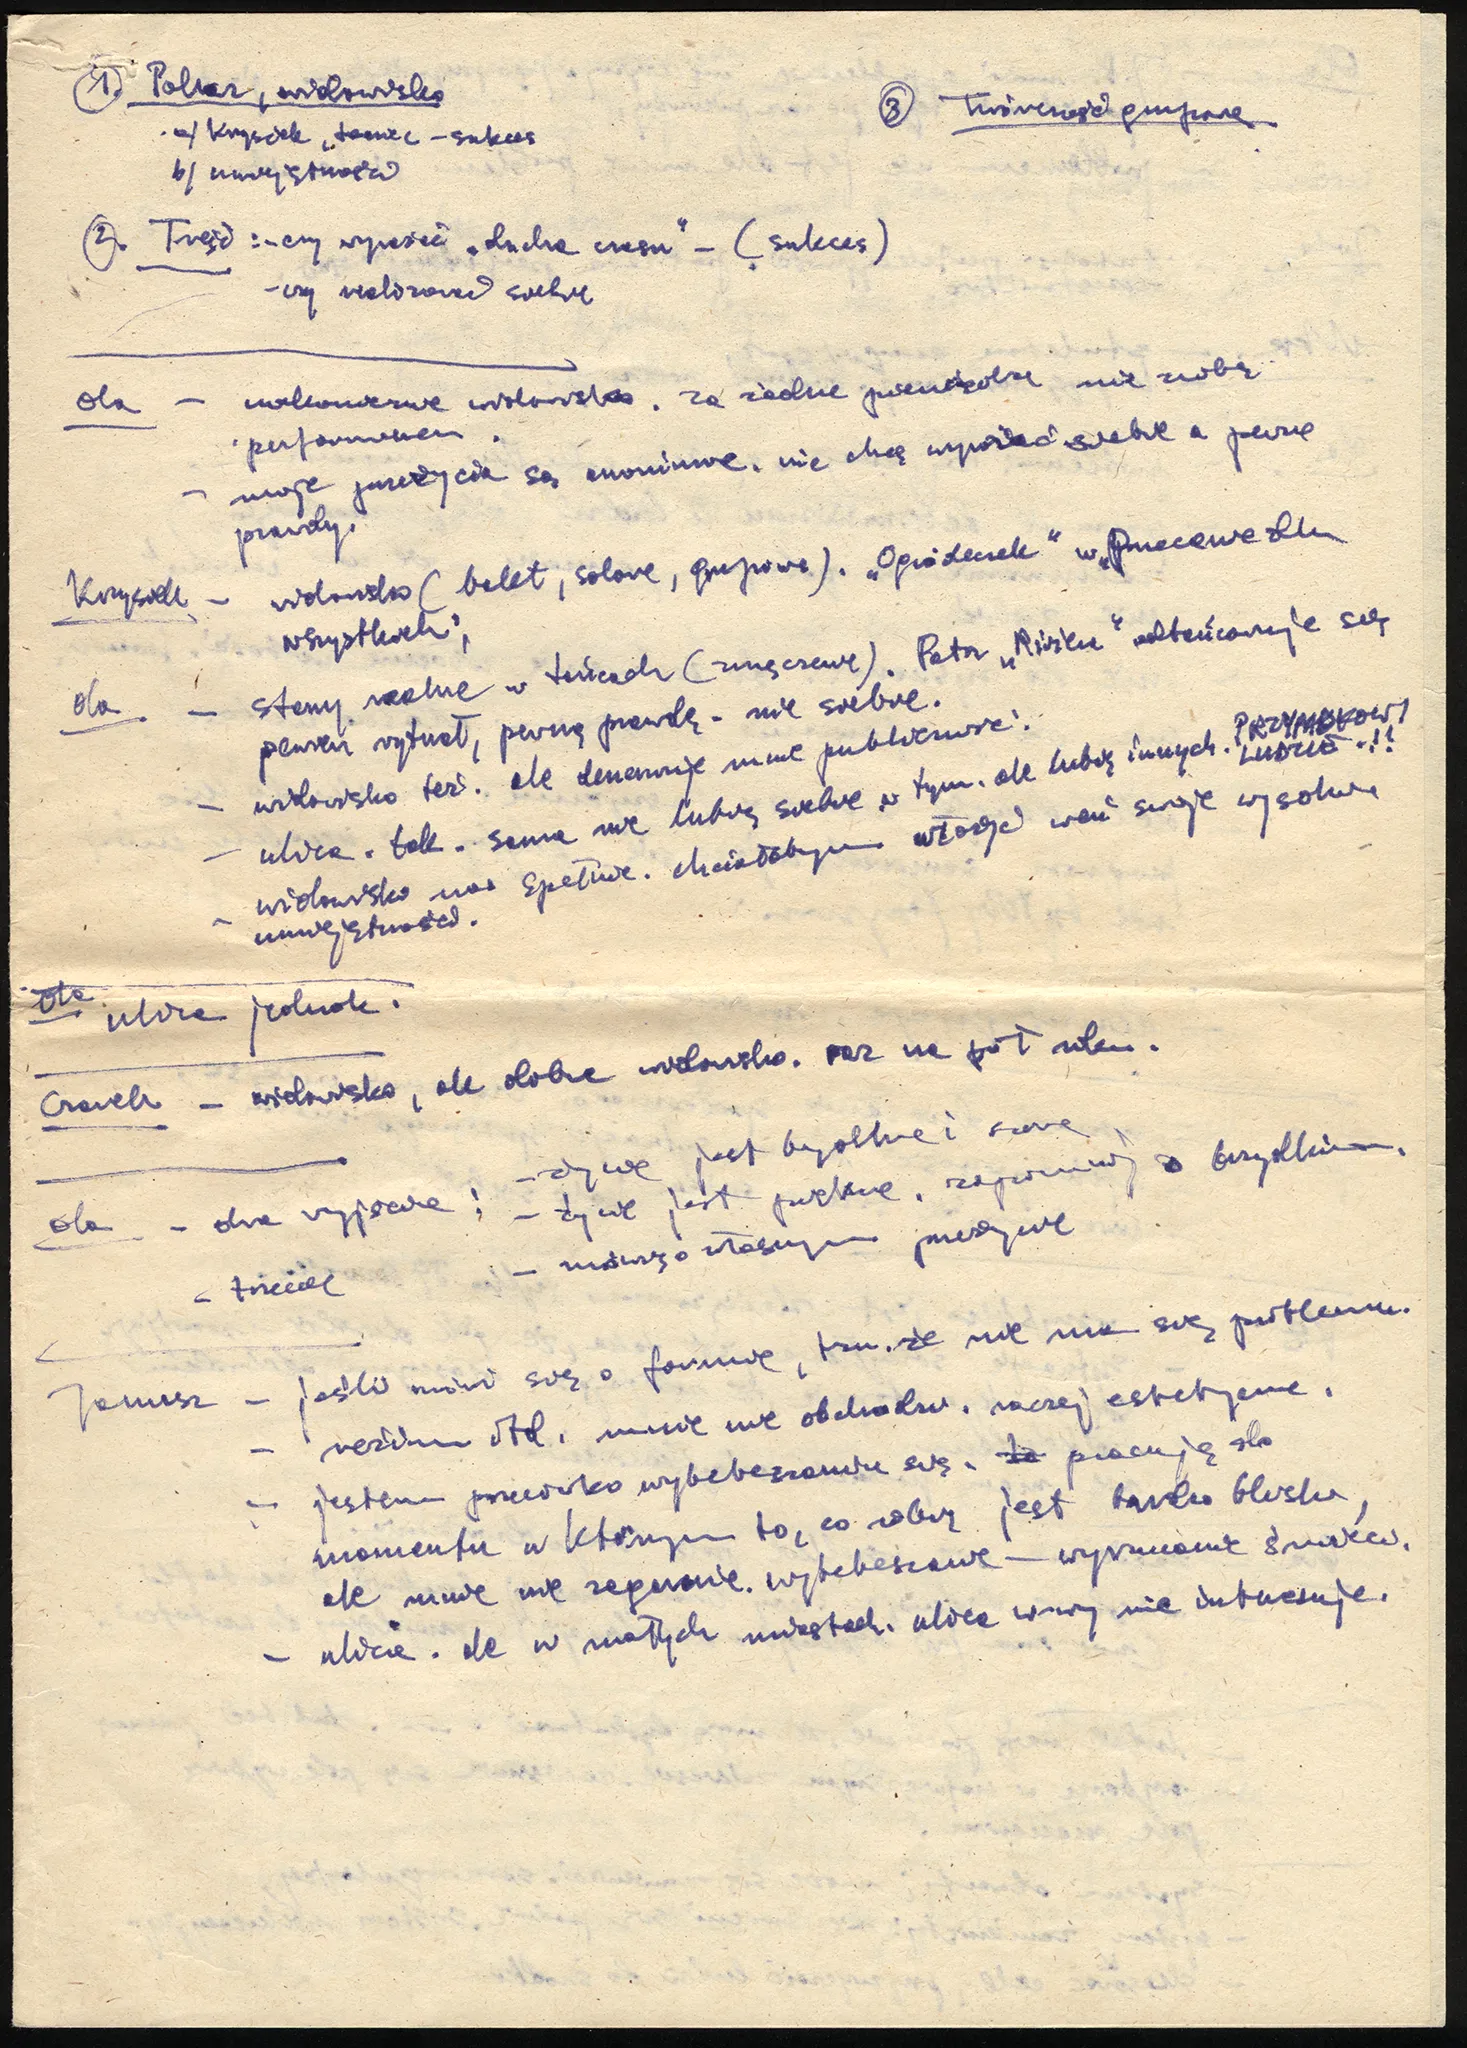 1. Pokaz, widowisko
a) Krysiek, taniec – sukces
b) umiejętności
3 Twórczość grupowa
2. Treść : – czy wyrażać „ducha czasu" – (sukces)
– czy realizować siebie
Ola – widowisko. za żadne pieniądze nie zrobię
performance.
– moje przeżycia są anonimowe. nie chcę wyrażać siebie a pewne
prawdy.
Krzysiek – widowisko (balet, solowe, grupowe). „Ogródeczek" w
wszystkich",
Ola – stany realne w tańcach (zmęczenie). Patrz „ " odtańcowuje się
pewien rytuał, pewną prawdę – nie siebie.
– widowisko też. ale denerwuje mnie publiczność.
– ulica. tak. sama nie lubię siebie w tym. ale lubię innych. PRZYPADKOWI LUDZIE !!
– widowisko nas spełnia. chciałabym włożyć weń swoje wysokie
umiejętności.
Ola ulica jednak.
Czarek – widowisko, ale dobre widowisko. raz na pół roku.
– życie jest brzydkie i szare
Ola – dwa wyjścia : – życie jest piękne, zapomnij o brzydkim.
– trzecie – mówię o własnym przeżyciu
Janusz – jeśli mówi się o formie, tzn. że nie ma się problemu.
– reżim itd. mnie nie obchodzi. raczej estetyczne.
– jestem przeciwko wybebeszaniu się. pracuję do
momentu w którym to, co robię jest bardzo bliskie,
ale mnie nie zagraża. wybebeszanie – wyrzucanie śmieci.
– ulica. ale w małych miastach. ulica w-wy nie interesuje.